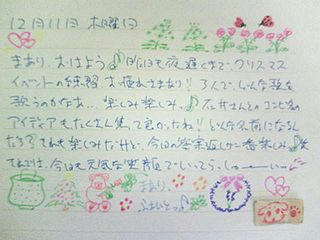 12月11日 木曜日
まあり、おはよう♪昨日も夜遅くまで、クリスマス
イベントの練習お疲れさまあり！3人で、どんな歌を
歌うのかなぁ… 楽しみ楽しみ♪石井さんとのコンビ名の
アイディアもたくさん集って良かったね！どんな名前になるん
だろ？それも楽しみだけど、今日の客楽返しが一番楽しみ♪
では、今日も元気な笑顔でいってらっしゃーい
まあり
ふぁいとっ♪